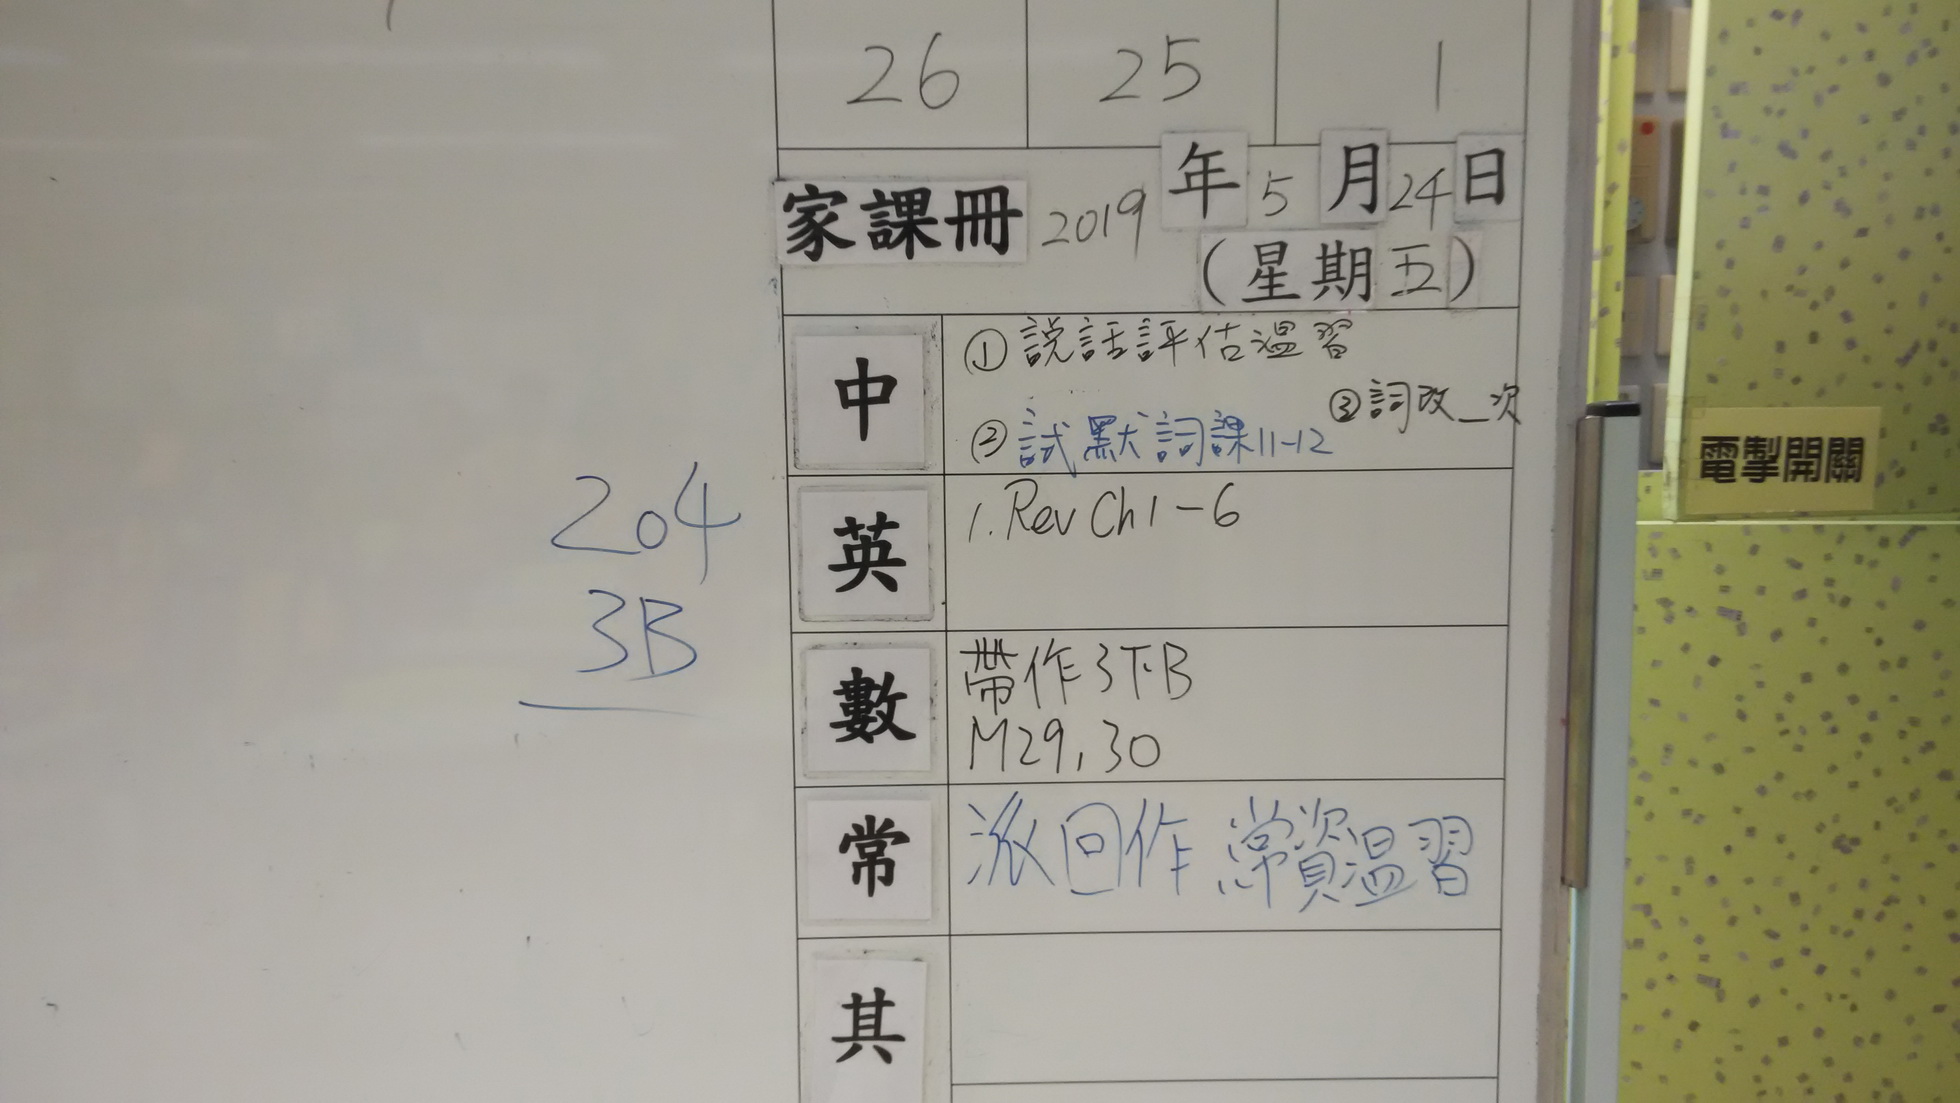 26 25 1
家課冊 2019年5月24日
(星期五)
中
①說話評估溫習
③詞改一次
②試默詞課11-12
英
1. Rev Ch1-6
數
帶作3下B
M29,30
常
派回作 常資溫習
其
204
3B
電掣開關